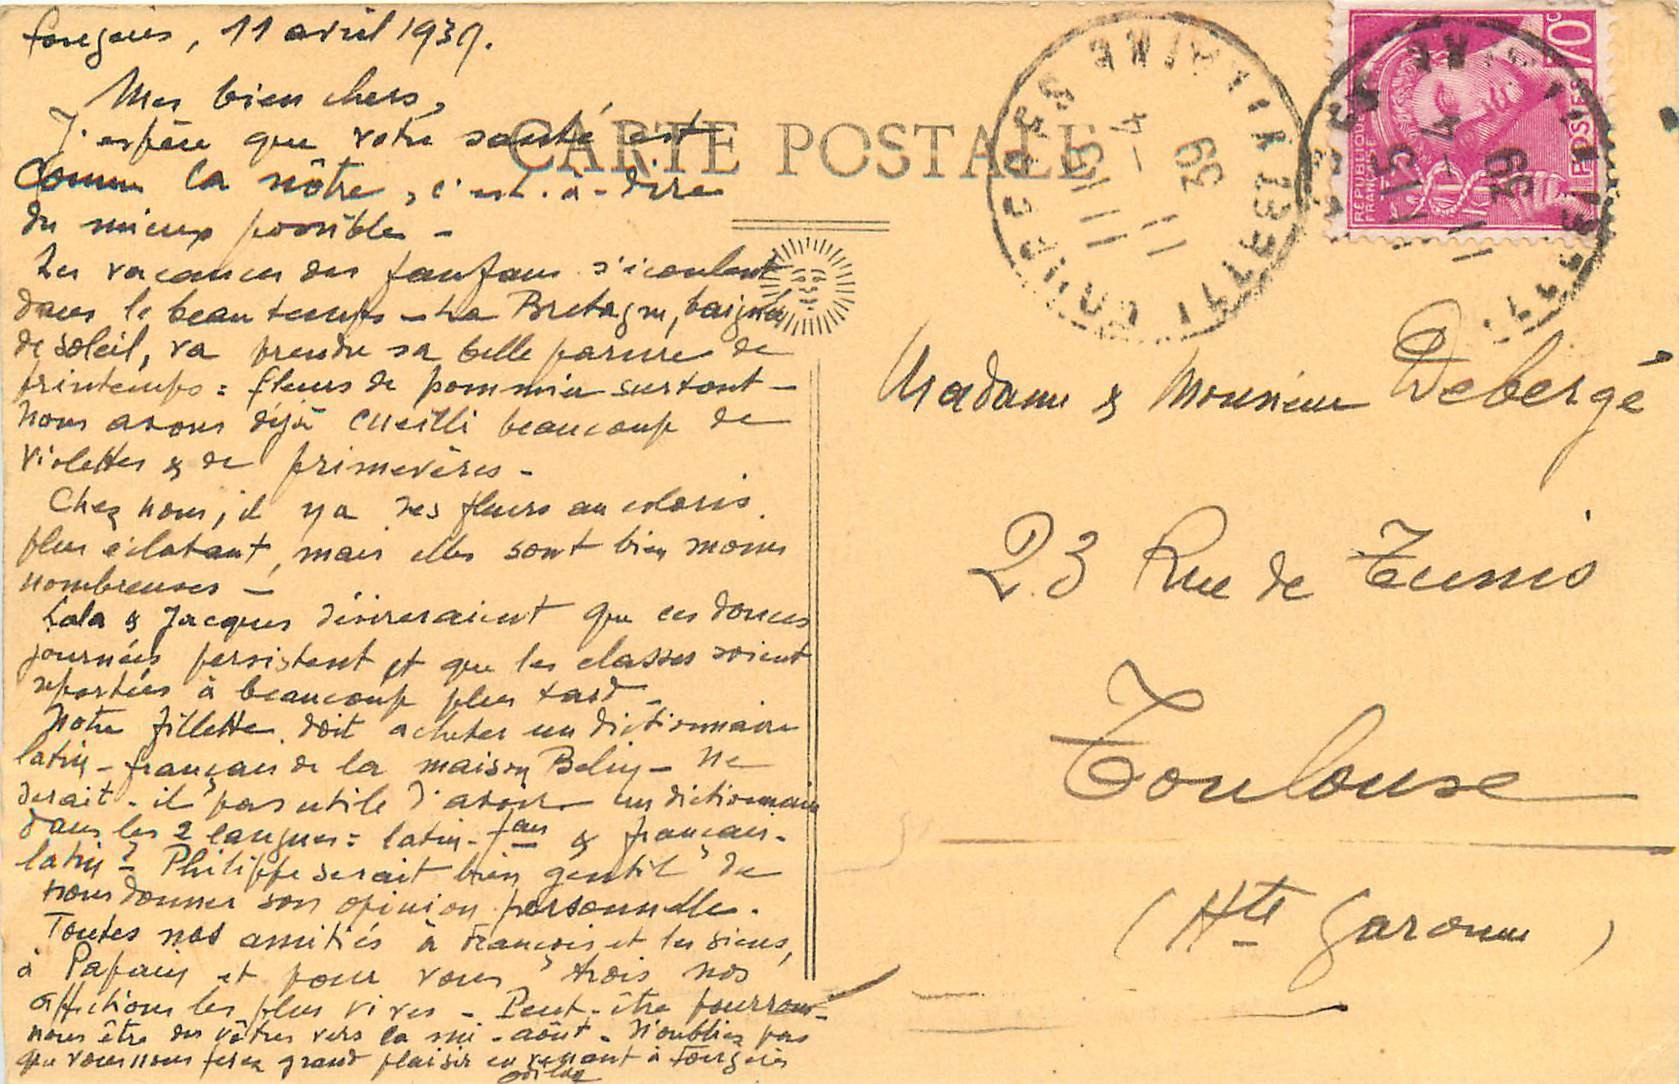 Fougères, 11 avril 1939.
Mes bien chers,
J'espère que votre santé est
comme la nôtre, c'est-à-dire
du mieux possible -
Les vacances des fanfans s'écoulent
dans le beau temps - La Bretagne, baignée
de soleil, va prendre sa belle parure de
printemps : fleurs de pommier surtout -
Nous avons déjà cueilli beaucoup de
violettes & de primevères -
Chez nous, il y a des fleurs au coloris
plus éclatant, mais elles sont bien moins
nombreuses -
Lala & Jacques désireraient que ces douces
journées persistent et que les classes soient
reportées à beaucoup plus tard -
Notre fillette doit acheter un dictionnaire
latin-français de la maison Belin - Ne
serait-il pas utile d'avoir un dictionnaire
dans les 2 langues : latin-fçais & français-
latin ? Philippe serait bien gentil de
nous donner son opinion personnelle.
Toutes nos amitiés à François et les siens,
à Papain et pour vous trois nos
affections les plus vives - Peut-être pourrons-
nous être des vôtres vers la mi-août. N'oubliez pas
que vous nous ferez grand plaisir en venant à Fougères
Odile
CARTE POSTALE
FOUGÈRES ILLE-ET-VILAINE
15
11 -4
39
70c
POSTES
REPUBLIQUE
FRANÇAISE
15
11 -4
39
Madame & Monsieur Debergé
23 Rue de Tunis
Toulouse
(Hte Garonne)